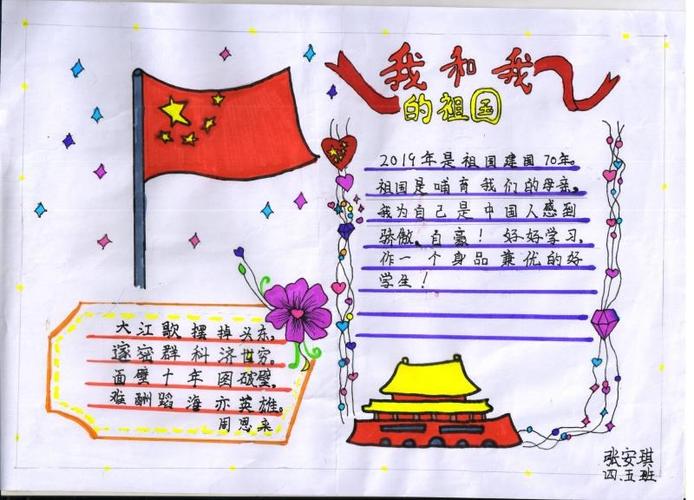 我和我
的祖国
2019年是祖国建国70年。
祖国是哺育我们的母亲。
我为自己是中国人感到
骄傲、自豪！好好学习，
作一个身品兼优的好
学生！
大江歌摆掉头东，
邃密群科济世穷。
面壁十年图破壁，
难酬蹈海亦英雄。
周恩来
张安琪
四.五班